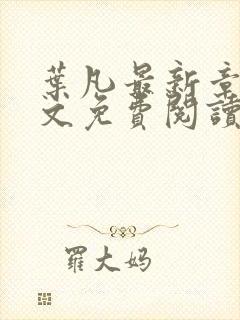 葉凡最新章
文免費閱讀
羅大妈